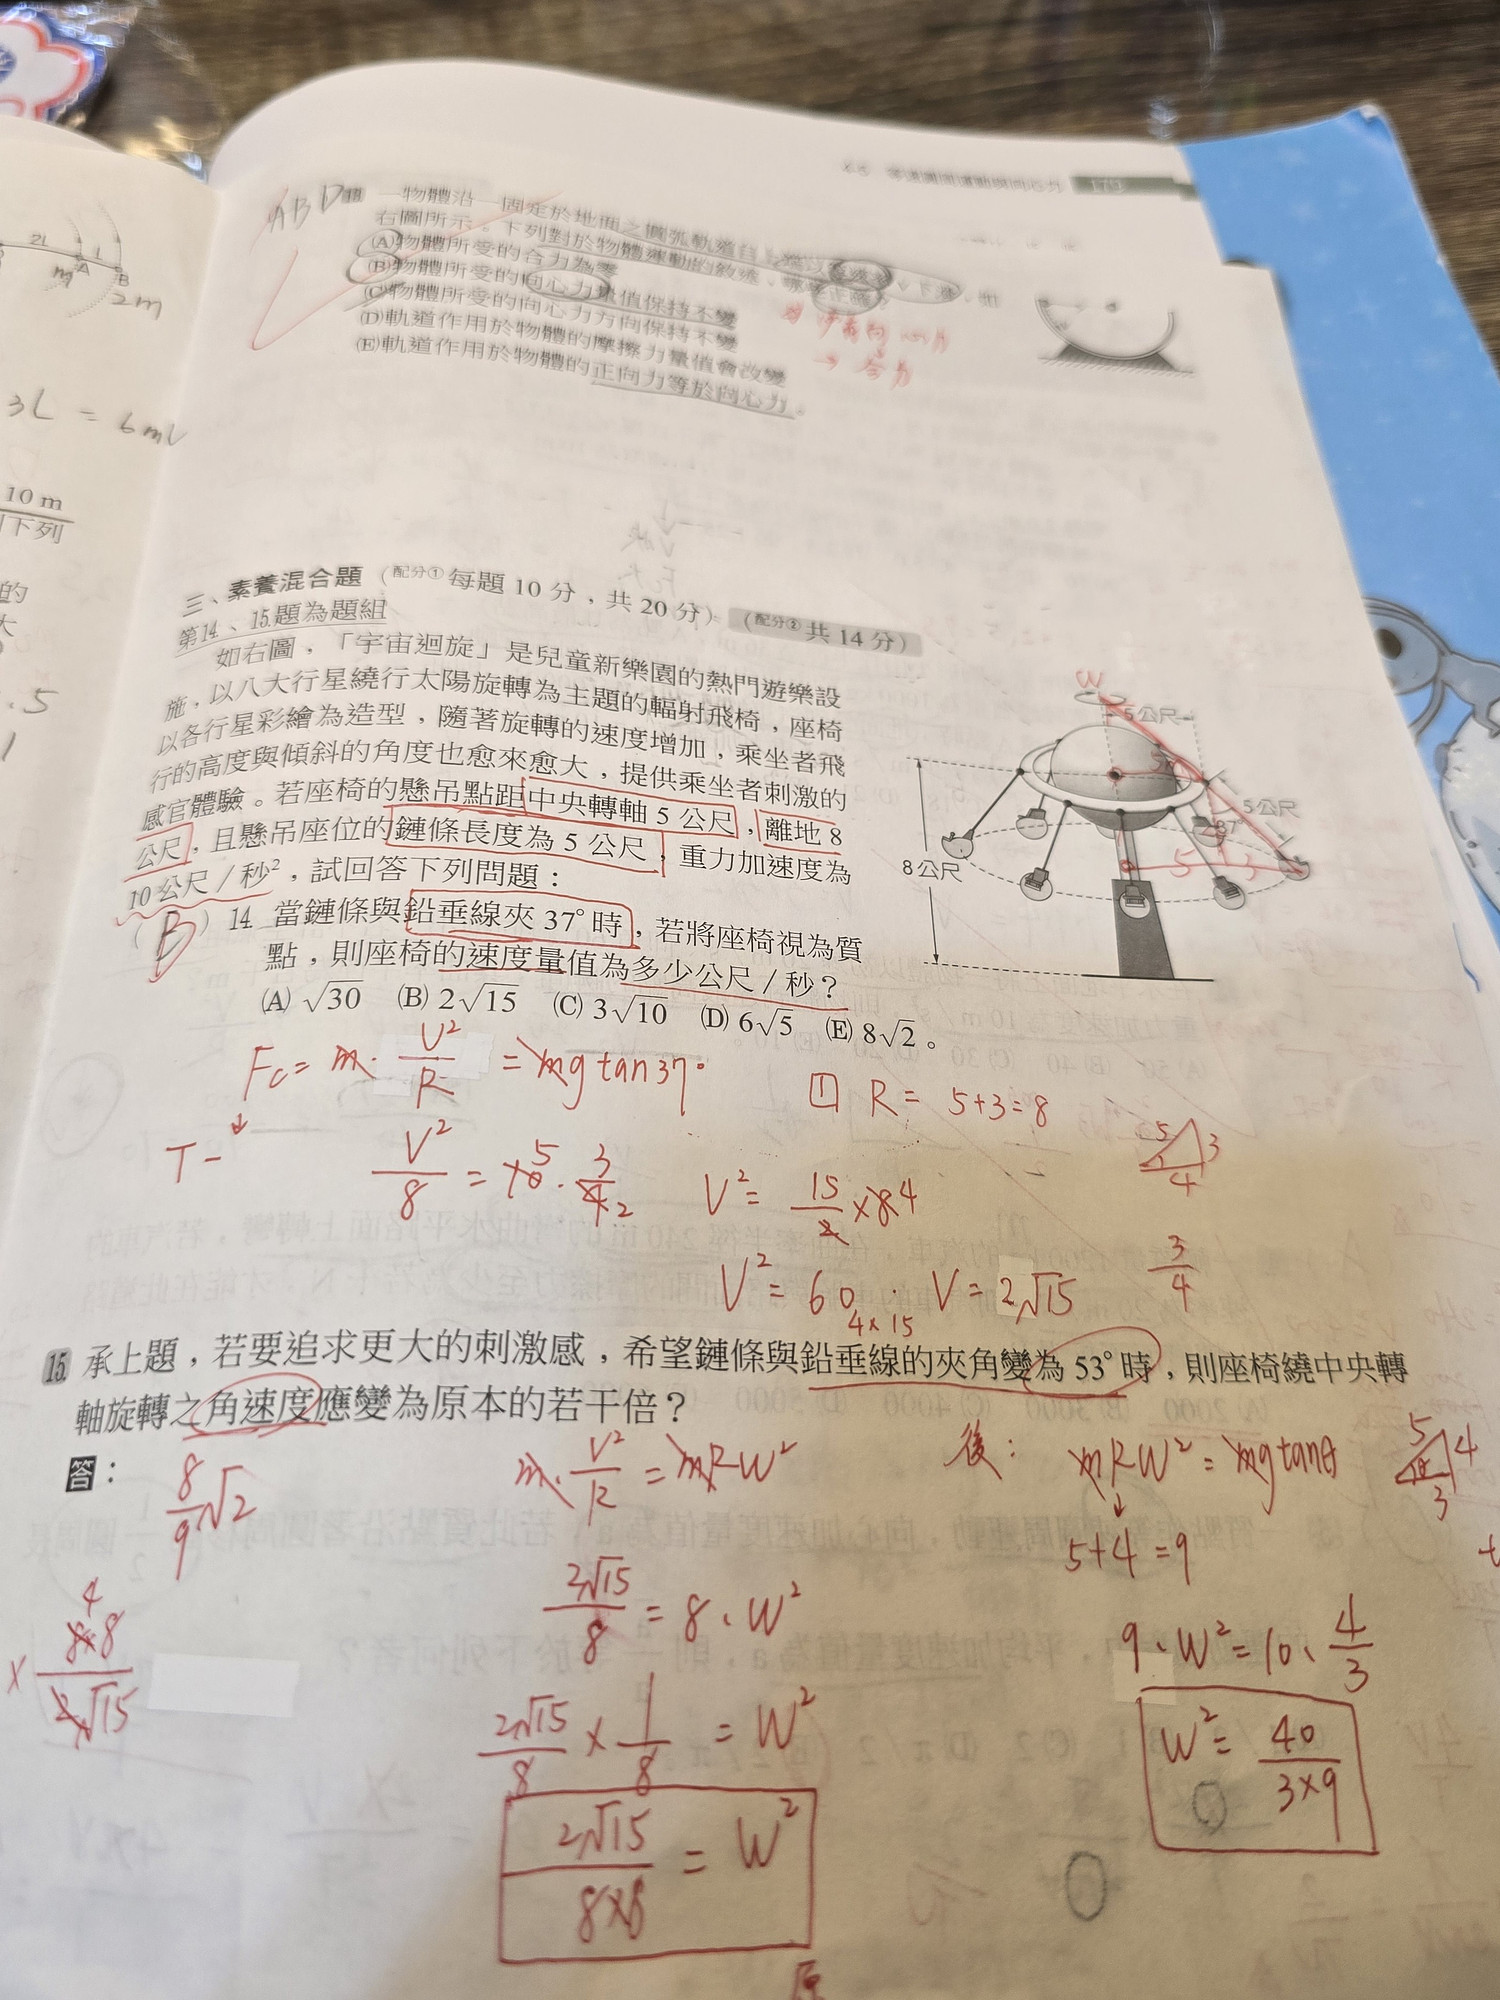 2L L
m A B
2m
3L = 6mL
10 m
下列
的
大
.5
4-5 等速圓周運動與向心力 173
ABD 一物體沿一固定於地面之圓弧軌道自上端以等速率v下滑,如
右圖所示。下列對於物體運動的敘述,哪些正確?
(A)物體所受的合力為零
(B)物體所受的向心力量值保持不變
(C)物體所受的向心力方向保持不變
(D)軌道作用於物體的摩擦力量值會改變
(E)軌道作用於物體的正向力等於向心力。
→ 合力
三、素養混合題(配分①每題10分,共20分)(配分②共14分)
第14、15題為題組
如右圖,「宇宙迴旋」是兒童新樂園的熱門遊樂設
施,以八大行星繞行太陽旋轉為主題的輻射飛椅,座椅
以各行星彩繪為造型,隨著旋轉的速度增加,乘坐者飛
行的高度與傾斜的角度也愈來愈大,提供乘坐者刺激的
感官體驗。若座椅的懸吊點距中央轉軸5公尺,離地8
公尺,且懸吊座位的鏈條長度為5公尺,重力加速度為
10公尺/秒²,試回答下列問題:
W
5公尺
5
5公尺
37°
8公尺
5 3
(B) 14. 當鏈條與鉛垂線夾37°時,若將座椅視為質
點,則座椅的速度量值為多少公尺/秒?
(A) √30 (B) 2√15 (C) 3√10 (D) 6√5 (E) 8√2。
Fc = m · V²/R = mg tan37°
① R = 5+3=8
T-
V²/8 = 10 5 · 3/4 2
V² = 15/2 × 8 4
5 3 4
V² = 60 V = 2√15
4×15
3/4
15. 承上題,若要追求更大的刺激感,希望鏈條與鉛垂線的夾角變為53°時,則座椅繞中央轉
軸旋轉之角速度應變為原本的若干倍?
答: 8/9 √2
m · V²/R = mRW²
後: mRW² = mg tanθ
5 4 3
5+4=9
2√15/8 = 8 · W²
4
× 8×8/2√15
9 · W² = 10 · 4/3
2√15/8 × 1/8 = W²
W² = 40/3×9
2√15/8×8 = W²
原